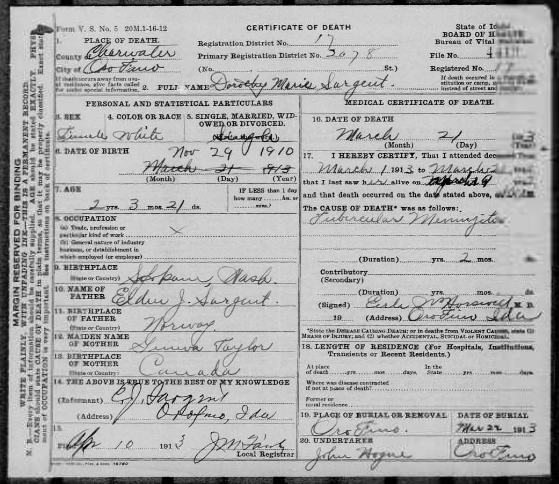 Form V. S. No. 5 20M. 1-16-12
CERTIFICATE OF DEATH
State of
BOARD OF
Bureau of Vital
1. PLACE OF DEATH
County of Clearwater
City of Orofino
Registration District No. 17
Primary Registration District No. 3078
File No.
Registered No.
(No. St.)
If death occurs away from usual residence, give facts called for under special information.
If death occurred in
instead of street
2. FULL NAME Dorothy Marie Sargent.
PERSONAL AND STATISTICAL PARTICULARS
3. SEX
4. COLOR OR RACE
5. SINGLE, MARRIED, WIDOWED OR DIVORCED.
Female White Single
6. DATE OF BIRTH Nov 29 1910
March 21 1913
(Month) (Day) (Year)
7. AGE
IF LESS than 1 day
how many hrs. or min.
2 yrs. 3 mos. 21 ds.
8. OCCUPATION
(a) Trade, profession or
particular kind of work
(b) General nature of industry
business, or establishment in
which employed (or employer)
9. BIRTHPLACE
(State or Country) Spokane, Wash.
10. NAME OF
FATHER
J. Sargent.
11. BIRTHPLACE
OF FATHER
(State or Country) Norway
12. MAIDEN NAME
OF MOTHER
Taylor
13. BIRTHPLACE
OF MOTHER
(State or Country) Canada
14. THE ABOVE IS TRUE TO THE BEST OF MY KNOWLEDGE
(Informant) E. J. Sargent
(Address) Orofino, Ida
15.
Filed Apr 10 1913
Local Registrar
MEDICAL CERTIFICATE OF DEATH
16. DATE OF DEATH
March 21
(Month) (Day) (Year)
17. I HEREBY CERTIFY, That I attended
March 1 1913 to March
that I last saw her alive on
and that death occurred on the date stated above,
The CAUSE OF DEATH* was as follows:
Tubercular Meningitis
(Duration) yrs. 2 mos.
Contributory
(Secondary)
(Duration) yrs. mos.
(Signed) M. D.
19 (Address) Orofino Ida
*State the DISEASE CAUSING DEATH; or in deaths from VIOLENT CAUSES, state (1) MEANS OF INJURY; and (2) whether ACCIDENTAL, SUICIDAL or HOMICIDAL.
18. LENGTH OF RESIDENCE (For Hospitals, Institutions, Transients or Recent Residents.)
At place
of death yrs. mos. days
In the
State yrs. mos. days
Where was disease contracted
if not at place of death?
Former or
usual residence
19. PLACE OF BURIAL OR REMOVAL
DATE OF BURIAL
Orofino. Mar 22 1913
20. UNDERTAKER
ADDRESS
John Hogue Orofino
MARGIN RESERVED FOR BINDING
WRITE PLAINLY, WITH UNFADING INK—THIS IS A PERMANENT RECORD.